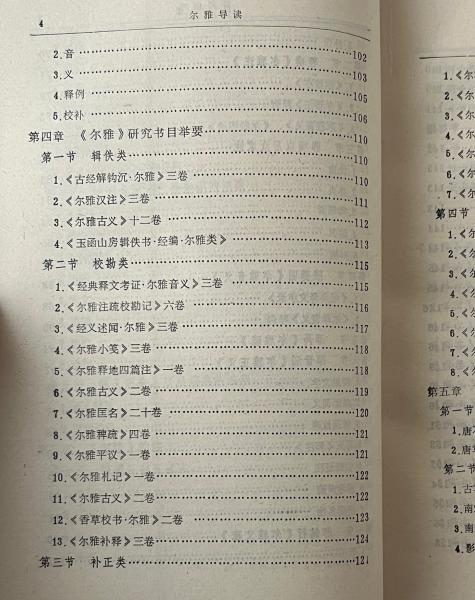 4 尔雅导读
2.音……102
3.义……103
4.释例……105
5.校补……106
第四章 《尔雅》研究书目举要……110
第一节 辑佚类……110
1.《古经解钩沉·尔雅》三卷……110
2.《尔雅汉注》三卷……111
3.《尔雅古义》十二卷……112
4.《玉函山房辑佚书·经编·尔雅类》……113
第二节 校勘类……115
1.《经典释文考证·尔雅音义》三卷……115
2.《尔雅注疏校勘记》六卷……116
3.《经义述闻·尔雅》三卷……117
4.《尔雅小笺》三卷……118
5.《尔雅释地四篇注》一卷……118
6.《尔雅古义》二卷……119
7.《尔雅匡名》二十卷……120
8.《尔雅稗疏》四卷……121
9.《尔雅平议》一卷……121
10.《尔雅札记》一卷……122
11.《尔雅古义》二卷……122
12.《香草校书·尔雅》二卷……123
13.《尔雅补释》三卷……123
第三节 补正类……124
1.《尔
2.《尔
3.《尔
4.《尔
5.《尔
6.《尔
7.《尔
第四节
1.《尔
2.《尔
3.《尔
4.《尔
5.《尔
6.《尔
7.《尔
8.《尔
第五章
第一节
1.唐
2.唐
第二节
1.古
2.南
3.南
4.影